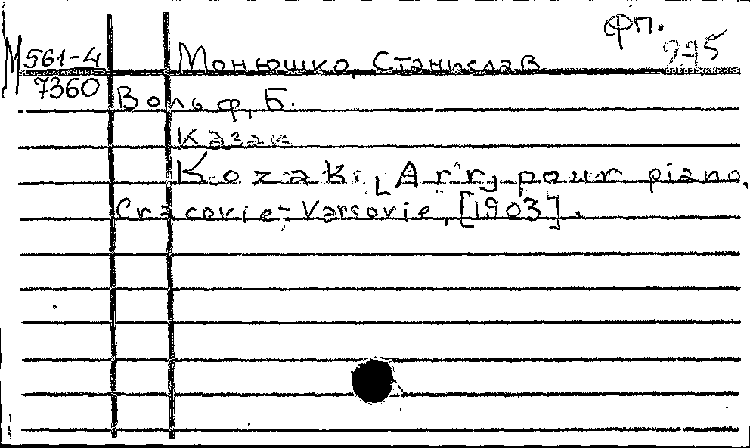 фп.
М 561-4 Монюшко, Станислав
7360 Вольф, Б.
Казак
Kozak. [Arr.] pour piano.
Cracovie-Varsovie, [1903].